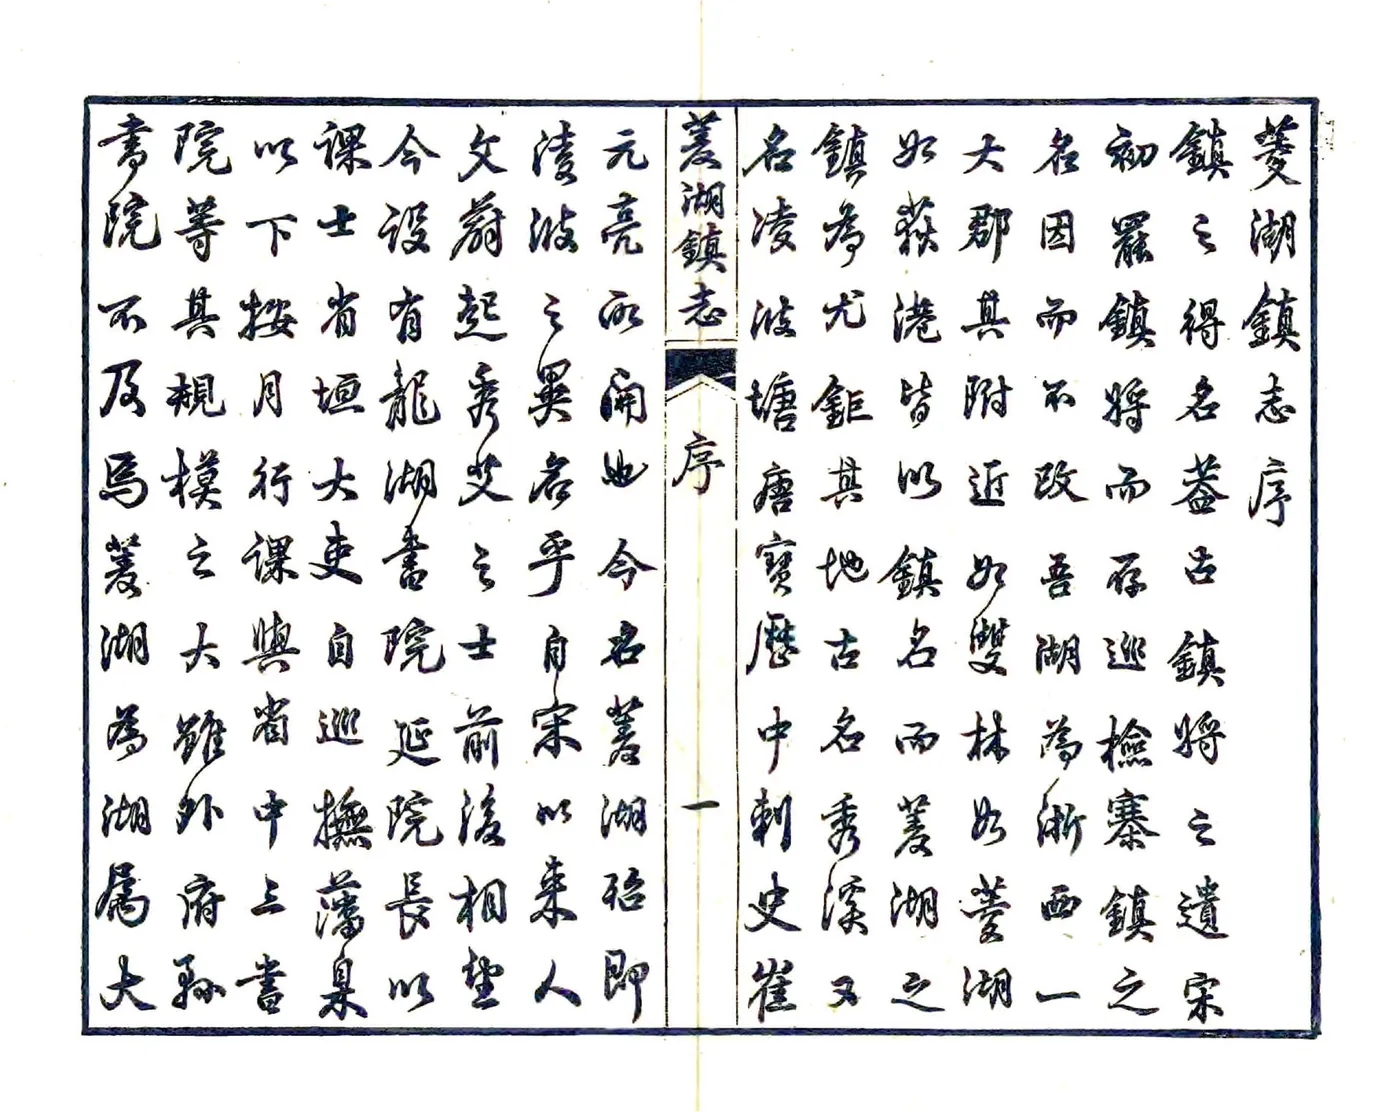 菱湖鎮志序
鎮之得名蓋古鎮將之遺宋
初罷鎮將而存巡檢寨鎮之
名因而不改吾湖為浙西一
大郡其附近如雙林如菱湖
如荻港皆以鎮名而菱湖之
鎮為尤鉅其地古名秀溪又
名凌波塘唐寶歷中刺史崔
菱湖鎮志
序
一
元亮所開也今名菱湖殆即
淩波之異名乎自宋以來人
文蔚起秀艾之士前後相望
今設有龍湖書院延院長以
課士省垣大吏自巡撫藩臬
以下按月行課與省中三書
院等其規模之大雖外府縣
書院不及焉菱湖為湖屬大